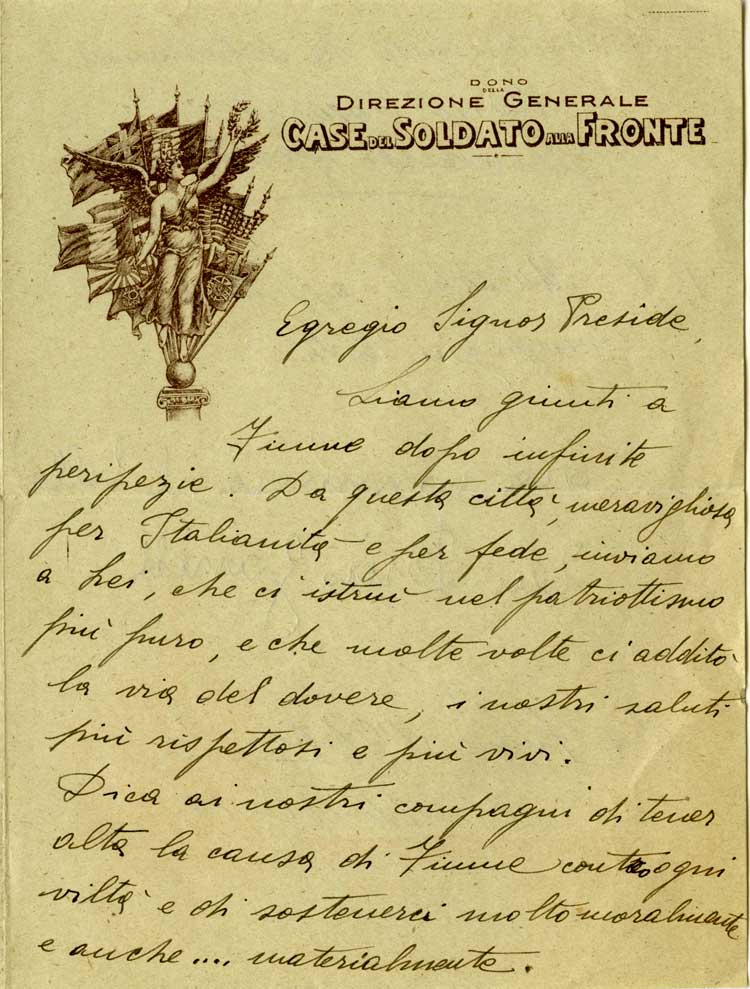 DONO
DELLA
DIREZIONE GENERALE
CASE DEL SOLDATO ALLA FRONTE
Egregio Signor Preside,
Siamo giunti a
Fiume dopo infinite
peripezie. Da questa città, meravigliosa
per Italianità e per fede, inviamo
a Lei, che ci istruì nel patriottismo
più puro, e che molte volte ci additò
la via del dovere, i nostri saluti
più rispettosi e più vivi.
Dica ai nostri compagni di tener
alta la causa di Fiume contro ogni
viltà e di sostenerci molto moralmente
e anche.... materialmente.